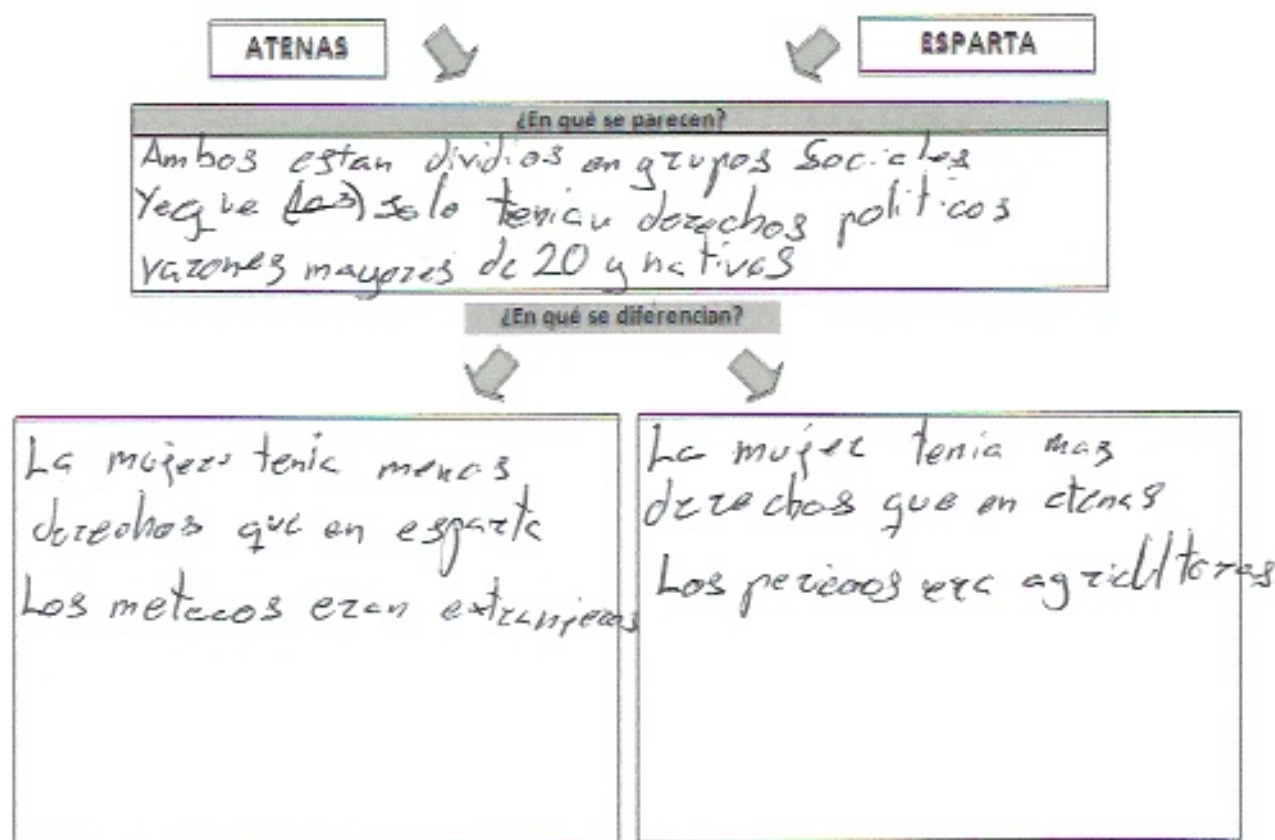 ATENAS
ESPARTA
¿En qué se parecen?
Ambos estan dividios en grupos Sociales
Yeque (los) solo tenian derechos politicos
varones mayores de 20 y nativos
¿En qué se diferencian?
La mujer tenia menos
derechos que en esparta
Los metecos eran extranjeros
La mujer tenia mas
derechos que en atenas
Los periecos era agricultores